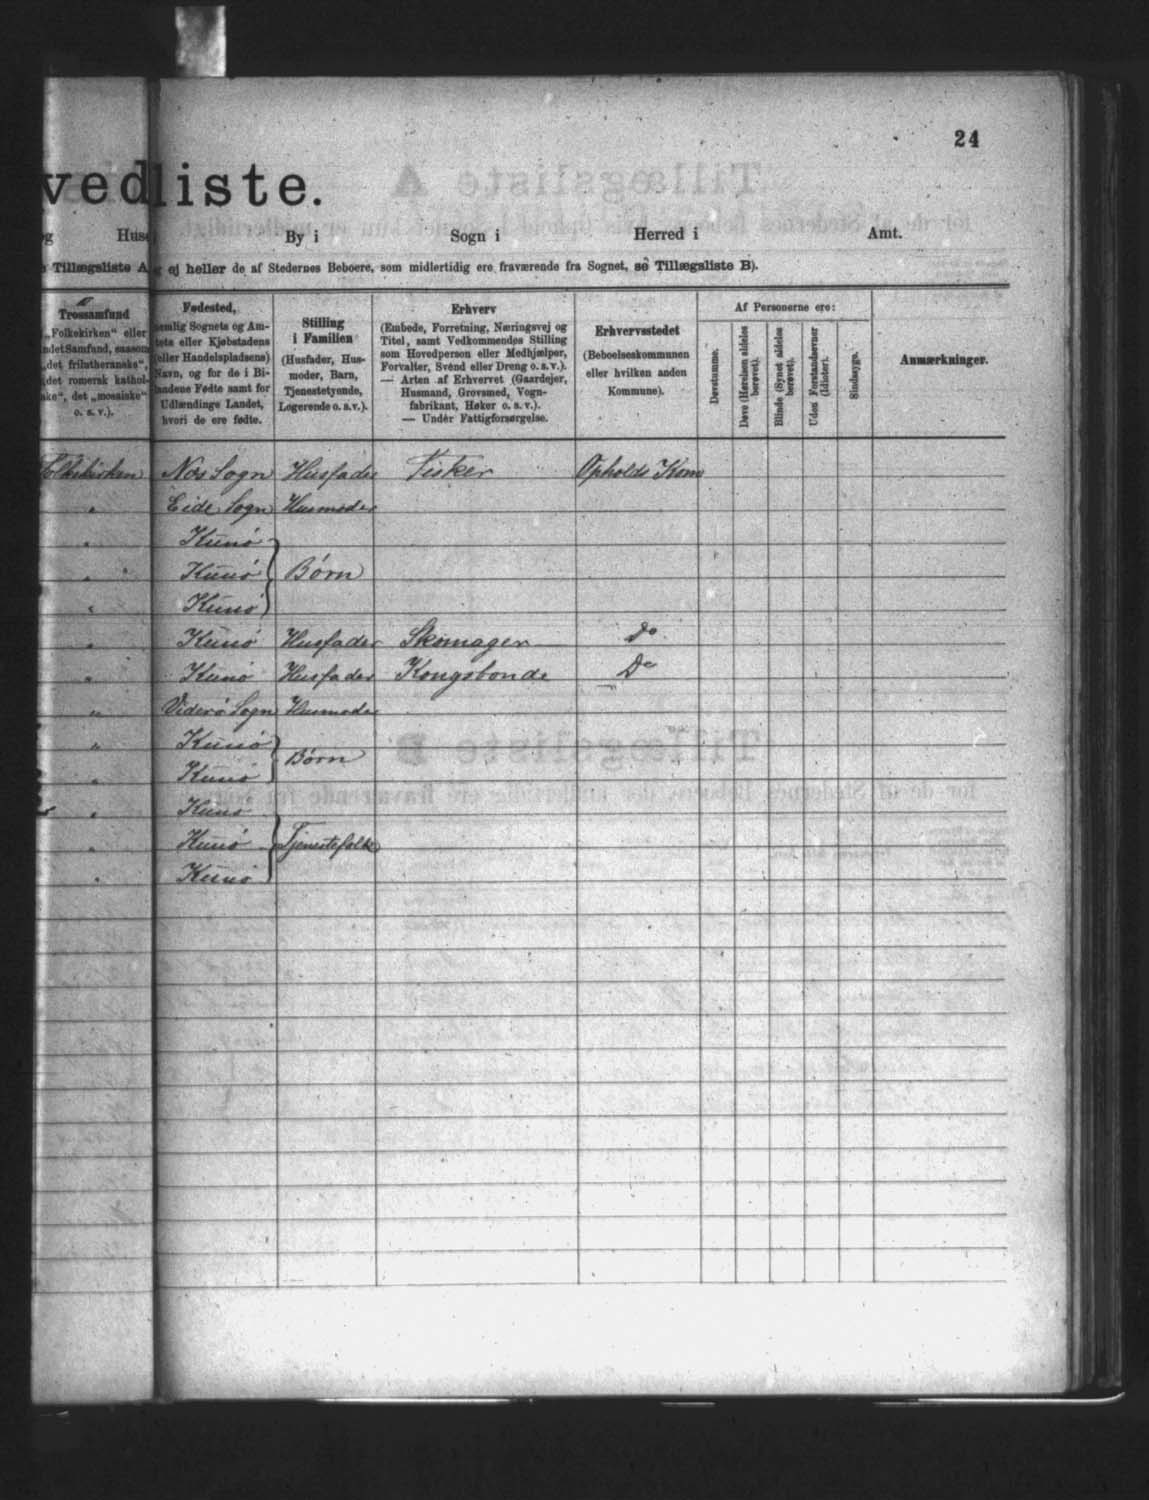 24
vedliste.
og Huse By i Sogn i Herred i Amt.
Tillægsliste A, og ej heller de af Stedernes Beboere, som midlertidig ere fraværende fra Sognet, se Tillægsliste B).
Trossamfund
„Folkekirken“ eller
andet Samfund, saasom
„det frilutheranske“,
det romersk kathol-
ske“, det „mosaiske“
o. s. v.).
Fødested,
nemlig Sognets og Am-
tets eller Kjøbstadens
(eller Handelspladsens)
Navn, og for de i Bi-
landene Fødte samt for
Udlændinge Landet,
hvori de ere fødte.
Stilling
i Familien
(Husfader, Hus-
moder, Barn,
Tjenestetyende,
Logerende o. s. v.).
Erhverv
(Embede, Forretning, Næringsvej og
Titel, samt Vedkommendes Stilling
som Hovedperson eller Medhjælper,
Forvalter, Svend eller Dreng o. s. v.).
— Arten af Erhvervet (Gaardejer,
Husmand, Grovsmed, Vogn-
fabrikant, Høker o. s. v.).
— Under Fattigforsørgelse.
Erhvervsstedet
(Beboelseskommunen
eller hvilken anden
Kommune).
Af Personerne ere:
Døvstumme.
Døve (Hørelsen aldeles
berøvet).
Blinde (Synet aldeles
berøvet).
Uden Forstandsevner
(Idioter).
Sindssyge.
Anmærkninger.
Folkekirken Næs Sogn Husfader Fisker Opholds Kom
" Eide Sogn Husmoder
" Kunø
" Kunø Børn
" Kunø
" Kunø Husfader Skomager Do
" Kunø Husfader Kongsbonde Do
" Viderø Sogn Husmoder
" Kunø
" Kunø Børn
" Kunø
" Kunø Tjenestefolk
" Kunø